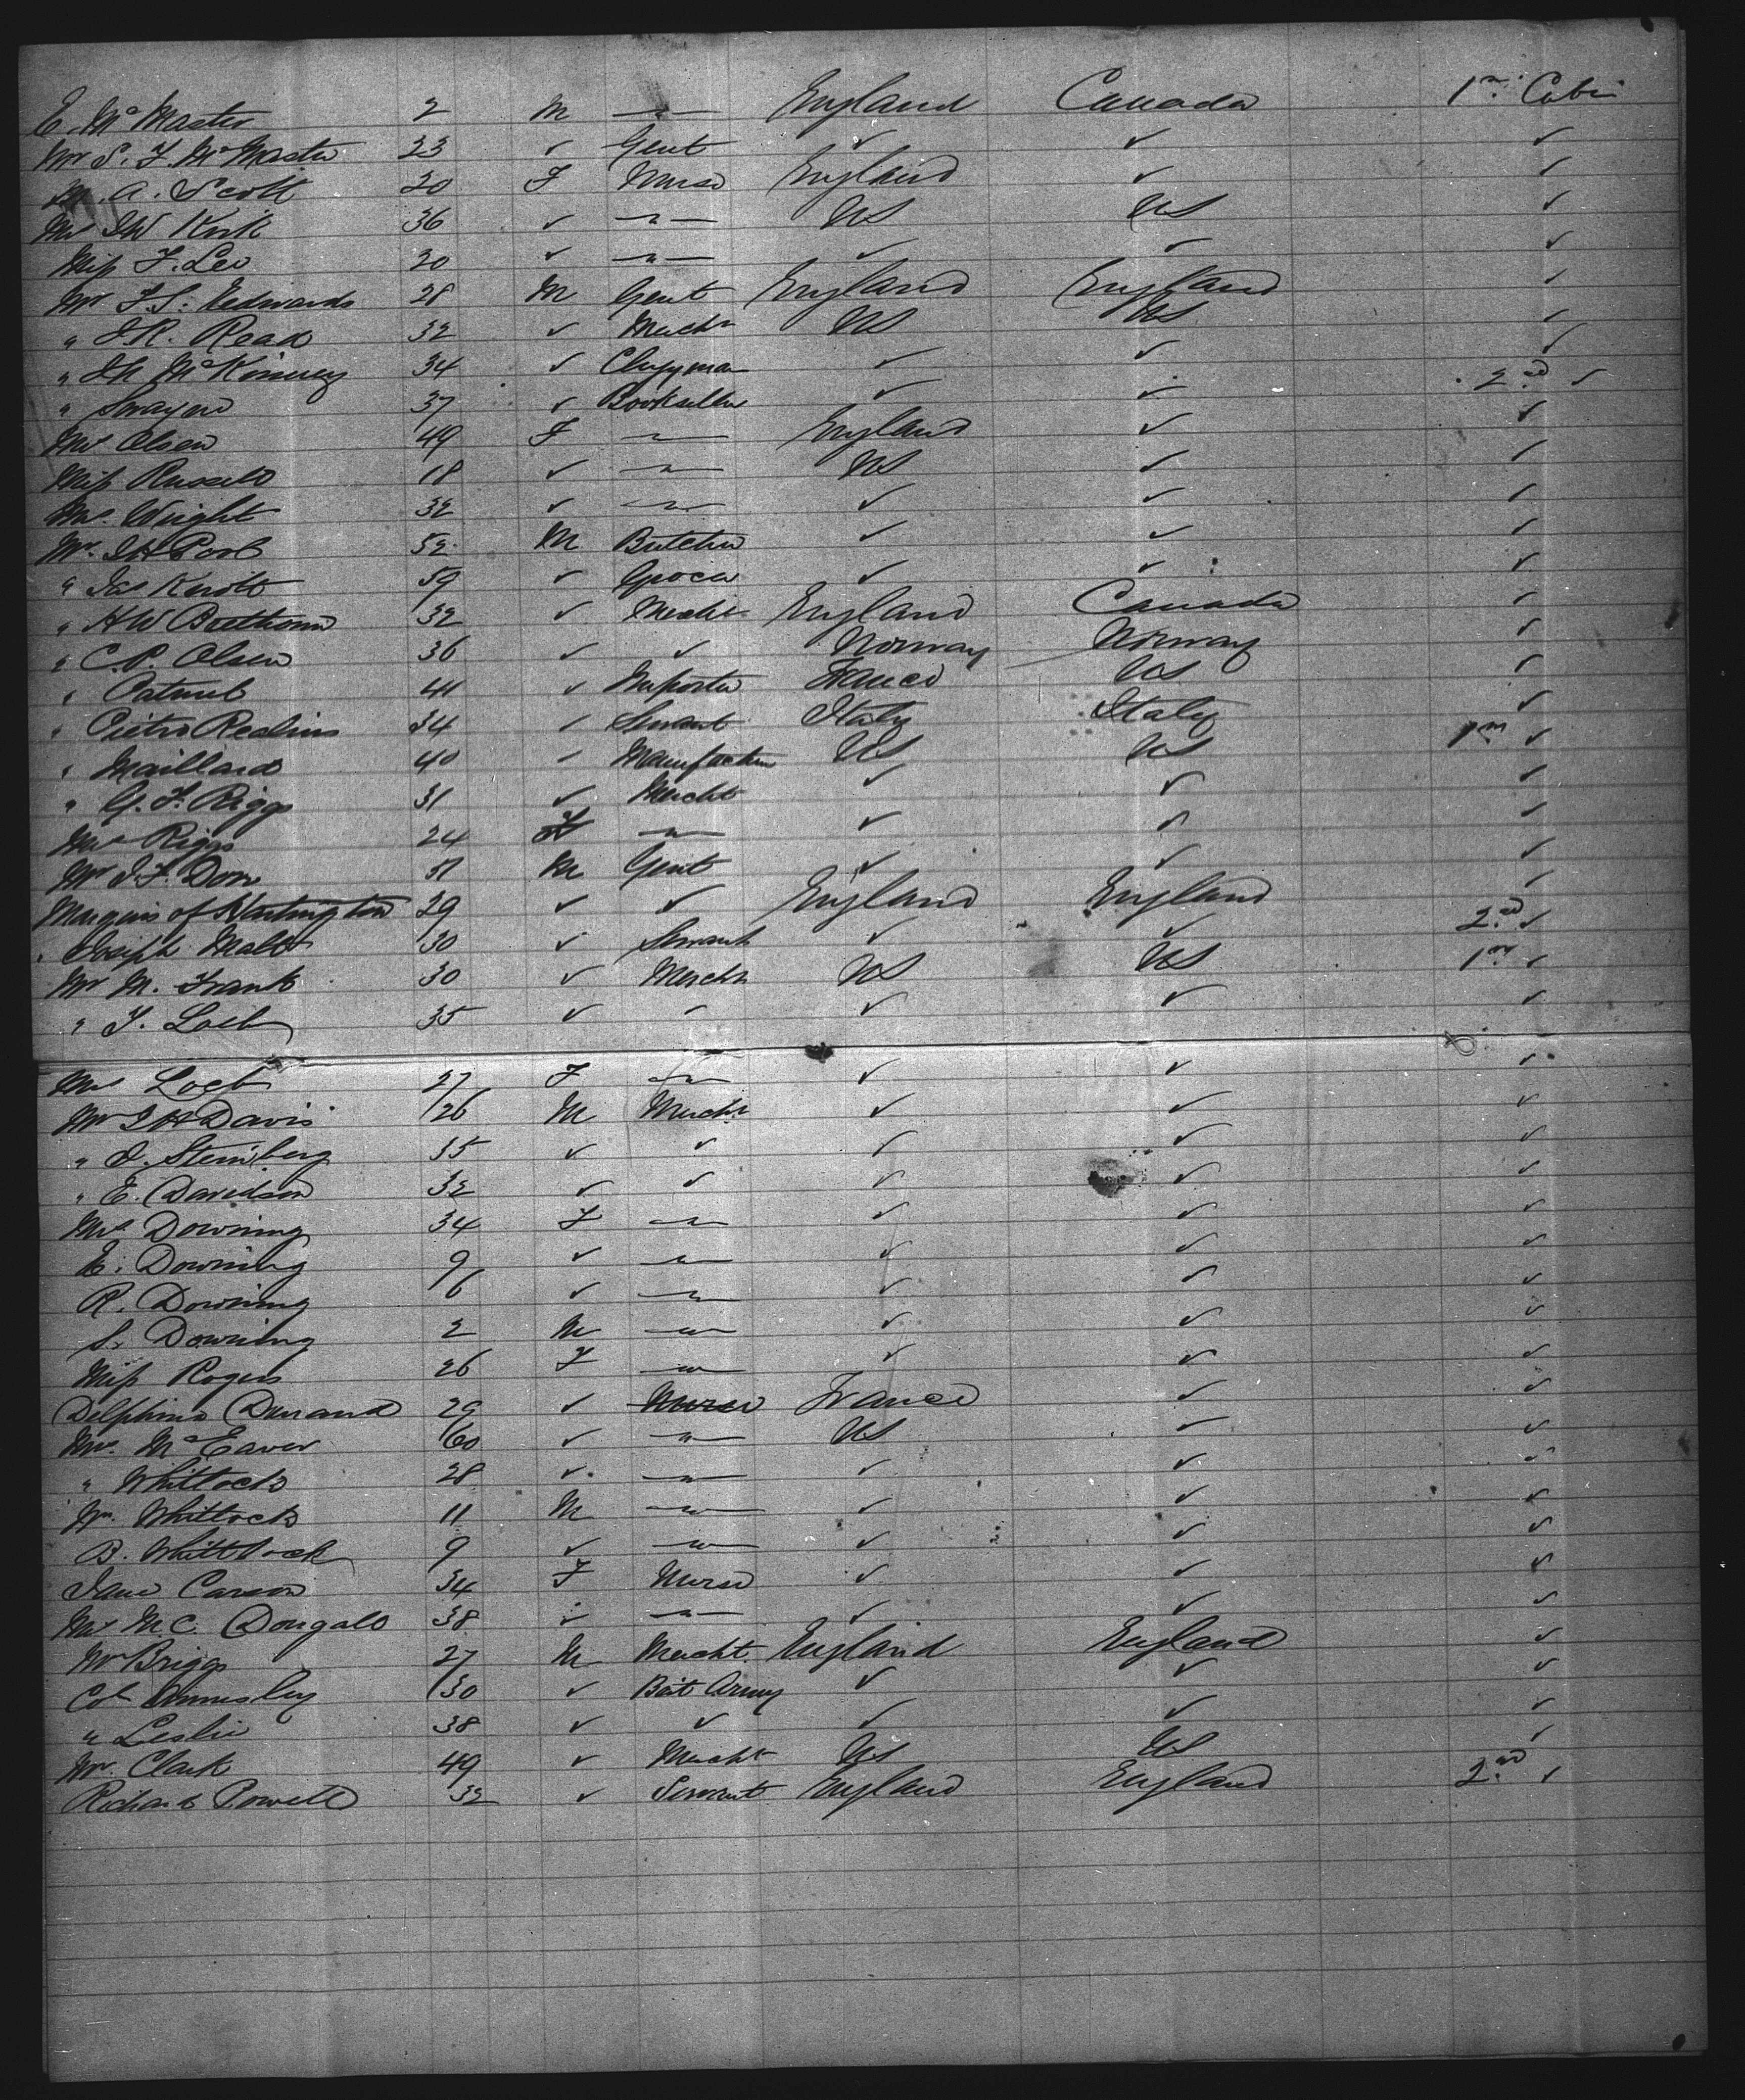 E. McMaster 2 M —"— England Canada 1st Cabin
Mr S. F. McMaster 23 ✓ Gent ✓ ✓ ✓
M. A. Scott 20 F Nurse England ✓ ✓
Mrs JW Kirk 36 ✓ —"— US US ✓
Miss F. Lee 20 ✓ —"— ✓ ✓ ✓
Mr F S. Eedwards 28 M Gent England England ✓
" J R. Read 32 ✓ Mercht US US ✓
" McKinney 34 ✓ Clergyman ✓ ✓ ✓
" Swayne 37 ✓ Bookseller ✓ ✓ 2nd ✓
Mrs Olsen 49 F —"— England ✓ ✓
Miss Russell 18 ✓ —"— US ✓ ✓
Mrs. Wright 32 ✓ —"— ✓ ✓ ✓
Mr. J H Pool 52 M Butcher ✓ ✓ ✓
" Jas Knott 59 ✓ Grocer ✓ ✓ ✓
" H W 32 ✓ Mercht England Canada ✓
" C. P. Olsen 36 ✓ ✓ Norway Norway ✓
" 41 ✓ Importer France US ✓
" Pietro 34 ✓ Servant Italy Italy ✓
" Maillard 40 ✓ Manufacturer US US 1st ✓
" G. F. Riggs 31 ✓ Mercht ✓ ✓ ✓
Mrs Riggs 24 F —"— ✓ ✓ ✓
Mr J. F. Dow 31 M Gent ✓ ✓ ✓
Marquis of Hartington 29 ✓ ✓ England England ✓
Joseph Malt 30 ✓ Servant ✓ ✓ 2nd ✓
Mr M. Frank 30 ✓ Mercht US US 1st ✓
" F. Loeb 35 ✓ ✓ ✓ ✓ ✓
Mrs Loeb 27 F —"— ✓ ✓ ✓
Mr J H Davis 26 M Mercht ✓ ✓ ✓
" J. Steinberg 35 ✓ ✓ ✓ ✓ ✓
" E. Davidson 32 ✓ ✓ ✓ ✓ ✓
Mrs Downing 34 F —"— ✓ ✓ ✓
E. Downing 9 ✓ —"— ✓ ✓ ✓
R. Downing 6 ✓ —"— ✓ ✓ ✓
S. Downing 2 M —"— ✓ ✓ ✓
Miss Rogers 26 F —"— ✓ ✓ ✓
Delphine Durand 29 ✓ Nurse France ✓ ✓
Mrs. McEaver 60 ✓ —"— US ✓ ✓
" Whitlock 28 ✓ —"— ✓ ✓ ✓
Wm. Whitlock 11 M —"— ✓ ✓ ✓
B. Whittlock 9 ✓ —"— ✓ ✓ ✓
Jane Carson 34 F Nurse ✓ ✓ ✓
Mrs M. C. Dougall 38 ✓ —"— ✓ ✓ ✓
Mr Briggs 27 M Mercht England England ✓
Col Annesley 30 ✓ Brit Army ✓ ✓ ✓
" Leslie 38 ✓ ✓ ✓ ✓ ✓
Mr. Clark 49 ✓ Mercht US US ✓
Richard Powell 32 ✓ Servant England England 2nd ✓